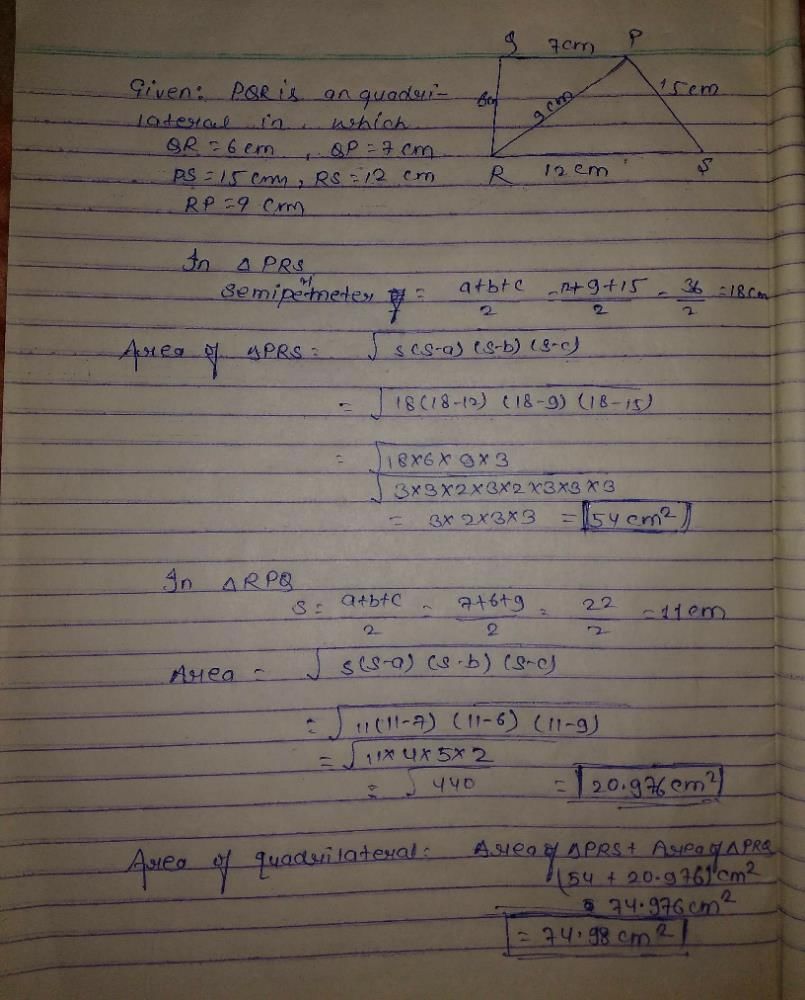 Q 7cm P
Given: PQR is an quadri-
6cm 9cm 15cm
lateral in, which
QR = 6cm , QP = 7 cm
R 12cm S
PS = 15 cm, RS = 12 cm
RP = 9 cm
In △PRS
Semipetmeter = a+b+c/2 = 12+9+15/2 = 36/2 = 18cm
Area of △PRS = √s(s-a) (s-b) (s-c)
= √18(18-12) (18-9) (18-15)
= √18×6×9×3
√3×3×2×3×2×3×3×3
= 3×2×3×3 = 54 cm²
In △RPQ
S = a+b+c/2 = 7+6+9/2 = 22/2 = 11cm
Area = √s(s-a) (s-b) (s-c)
= √11(11-7) (11-6) (11-9)
= √11×4×5×2
= √440 = 20.976 cm²
Area of quadrilateral = Area of △PRS + Area of △PRQ
(54 + 20.976) cm²
= 74.976 cm²
= 74.98 cm²